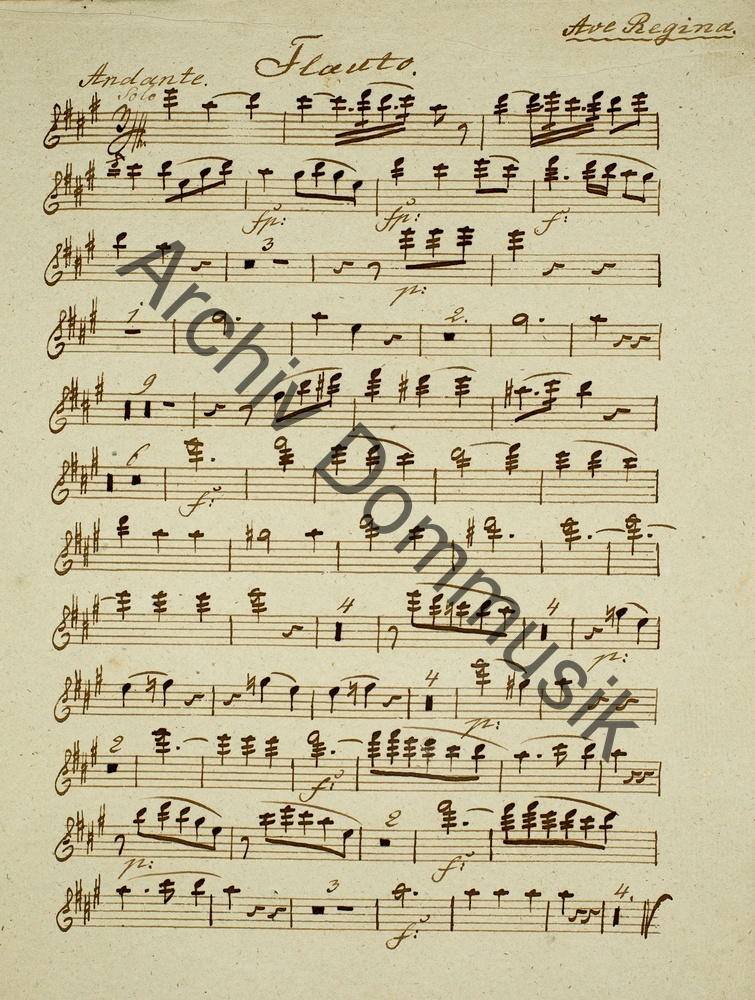 Ave Regina.
Flauto.
Andante.
Solo
fp: fp: f:
3
p:
1 2.
9
6
f:
4 4
p:
4
p:
2
f:
2
p: f:
3 4.
f:
Archiv Dommusik